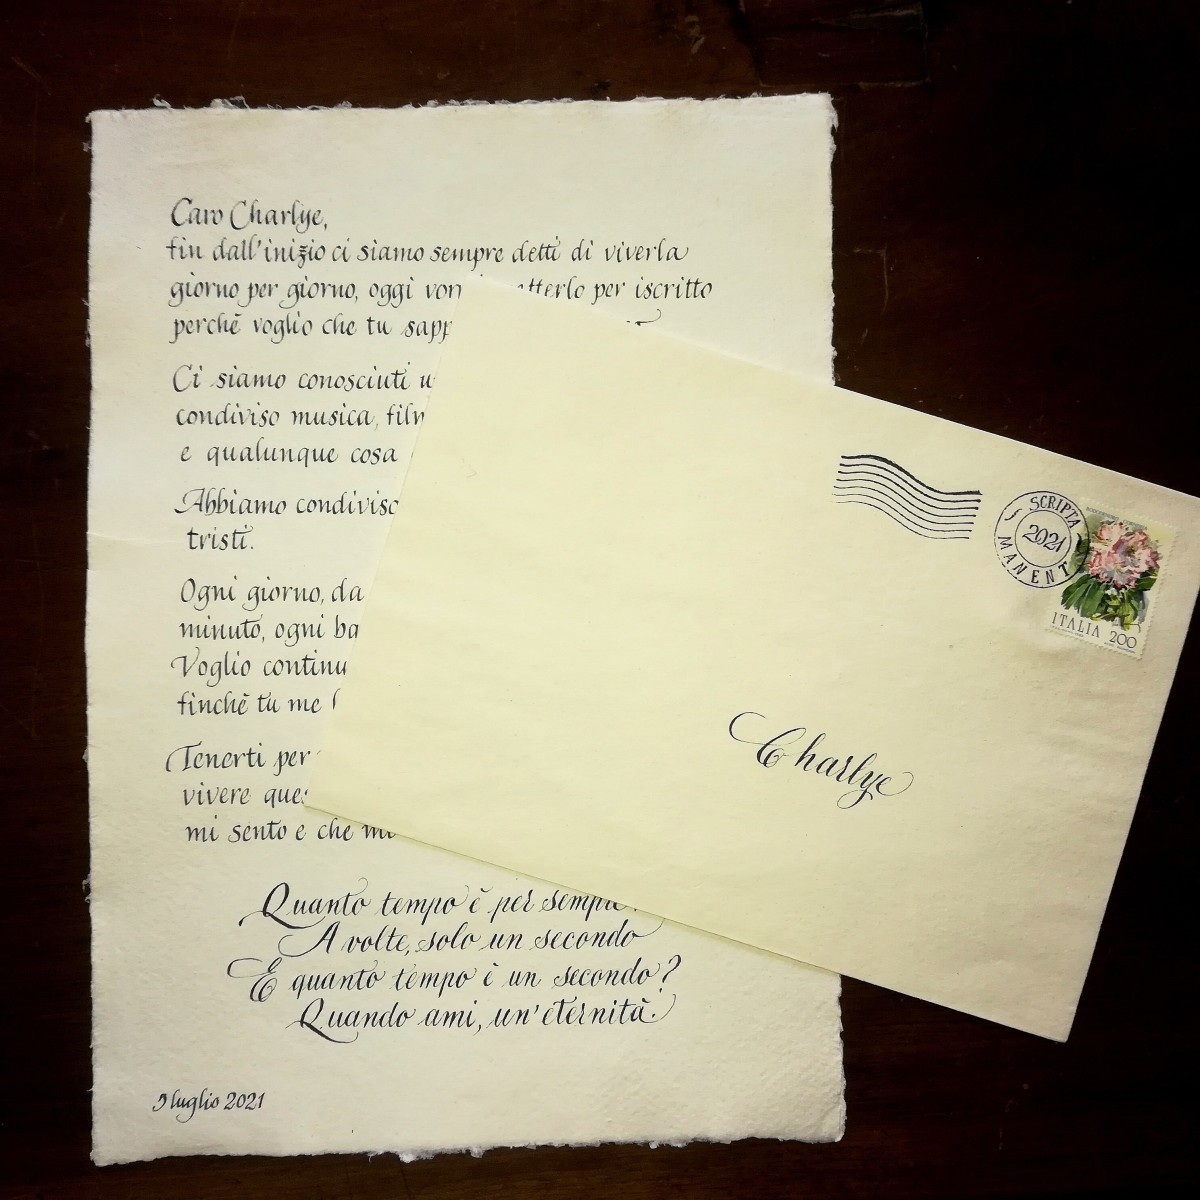 Caro Charlye,
fin dall'inizio ci siamo sempre detti di viverla
giorno per giorno, oggi per iscritto
perchè voglio che tu
Ci siamo conosciuti
condiviso musica,
e qualunque cosa
Abbiamo condiviso
tristi.
Ogni giorno, da
minuto, ogni
Voglio
finchè tu me
Tenerti per
vivere
mi sento e che
Quanto tempo è per sempre?
A volte, solo un secondo
E quanto tempo è un secondo?
Quando ami, un'eternità.
luglio 2021
SCRIPTA
2021
MANENT
ITALIA 200
Charlye